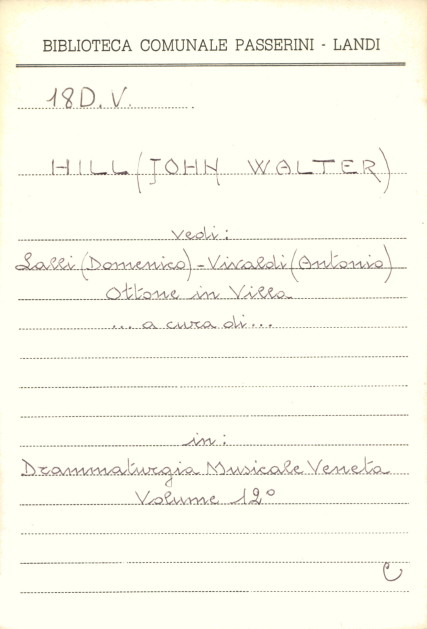 BIBLIOTECA COMUNALE PASSERINI - LANDI
18 D. V.
HILL (JOHN WALTER)
vedi:
Lalli (Domenico) - Vivaldi (Antonio)
Ottone in Villa
... a cura di ...
in:
Drammaturgia Musicale Veneta
Volume 12°
C